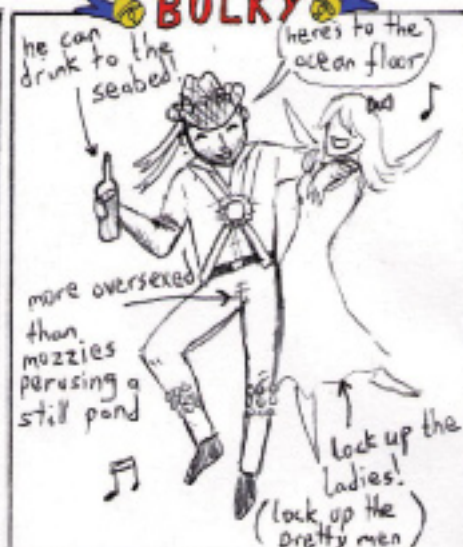 BULKY
he can
drink to the
seabed!
here's to the
ocean floor
more oversexed
than
mozzies
perusing a
still pond
lock up the
ladies!
(lock up the
pretty men